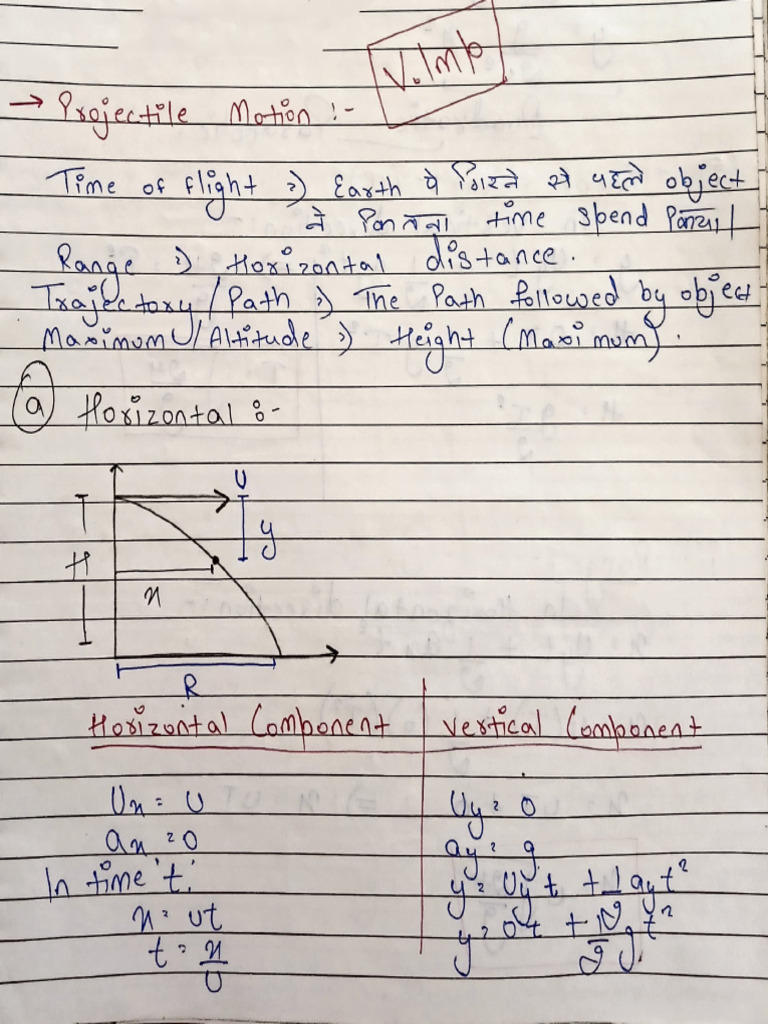 V. Imp
→ Projectile Motion :-
Time of flight :) Earth पे गिरने से पहले object
ने कितना time spend किया।
Range :) Horizontal distance.
Trajectory / Path :) The Path followed by object
Maximum / Altitude :) Height (Maximum).
(a) Horizontal :-
U
y
H
x
R
Horizontal Component
Vertical Component
Ux = U
Uy = 0
ax = 0
ay = g
In time 't'
y = Uyt + 1/2 ayt²
x = ut
y = 0t + 1/2 gt²
t = x/U